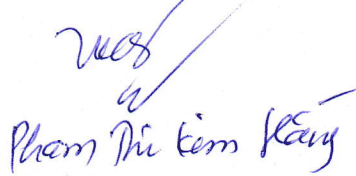 Phạm Thị Kim Hằng